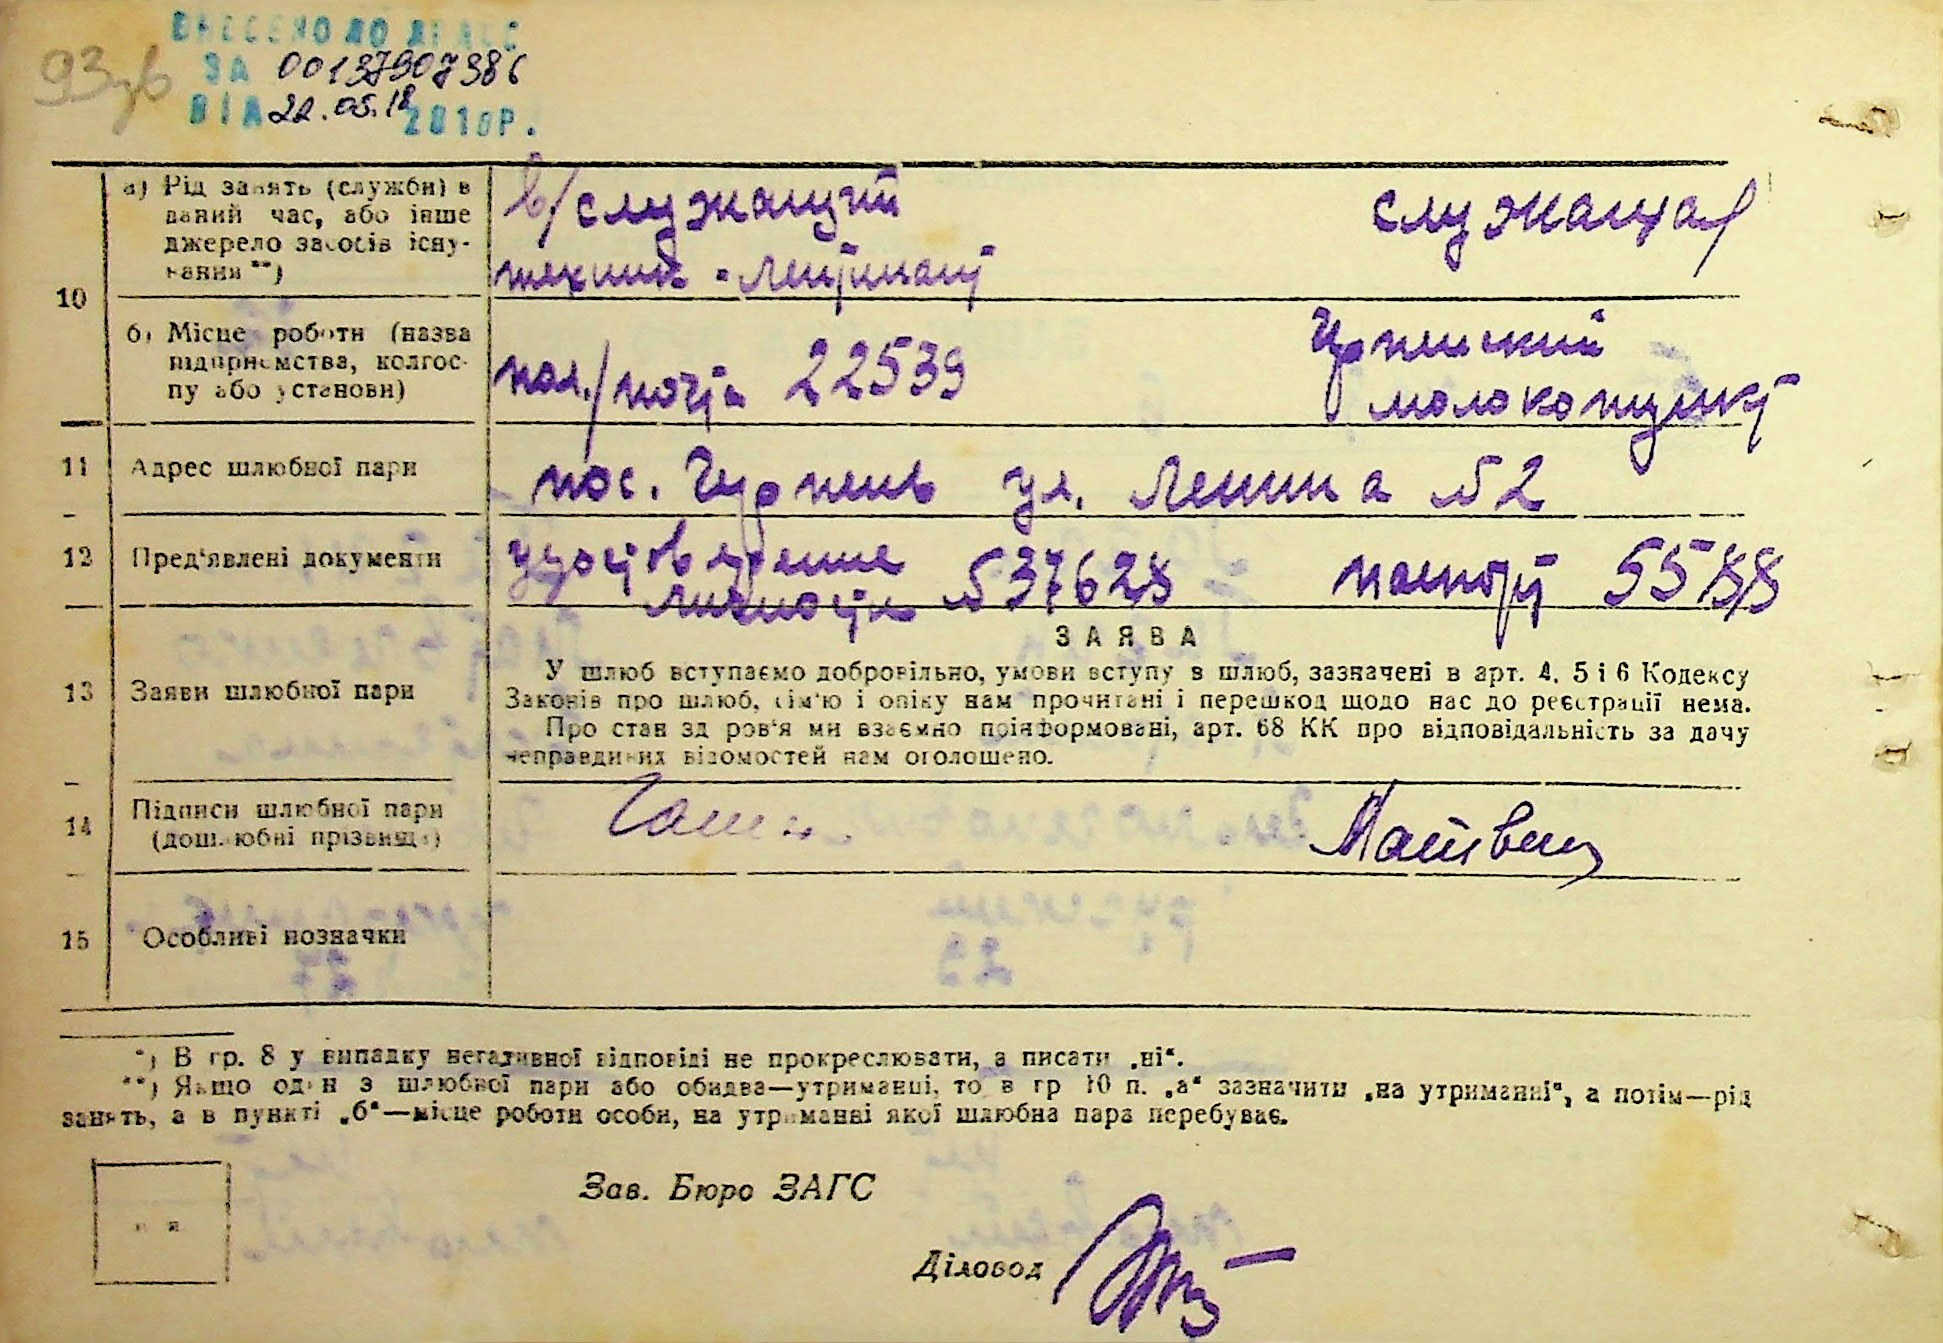 93 зв
ВНЕСЕНО ДО ДРАЦС
ЗА 00137907386
ВІД 22.05.18 2018р.
10
а) Рід занять (служби) в
даний час, або інше
джерело засобів існу-
вання **)
в/служащий
техник-лейтенант
служащая
б) Місце роботи (назва
підприємства, колгос-
пу або установи)
пол./почта 22539
молокопункт
11
Адрес шлюбної пари
пос. ул. Ленина № 2
12
Пред'явлені документи
удостоверение
личности № 37628
паспорт 5588
13
Заяви шлюбної пари
ЗАЯВА
У шлюб вступаємо добровільно, умови вступу в шлюб, зазначені в арт. 4, 5 і 6 Кодексу
Законів про шлюб, сім'ю і опіку нам прочитані і перешкод щодо нас до реєстрації нема.
Про стан здоров'я ми взаємно поінформовані, арт. 68 КК про відповідальність за дачу
неправдивих відомостей нам оголошено.
14
Підписи шлюбної пари
(дошлюбні прізвища)
15
Особливі позначки
*) В гр. 8 у випадку негативної відповіді не прокреслювати, а писати „ні“.
**) Якщо один з шлюбної пари або обидва—утриманці, то в гр 10 п. „а“ зазначити „на утриманні“, а потім—рід
занять, а в пункті „б“—місце роботи особи, на утриманні якої шлюбна пара перебуває.
Зав. Бюро ЗАГС
Діловод